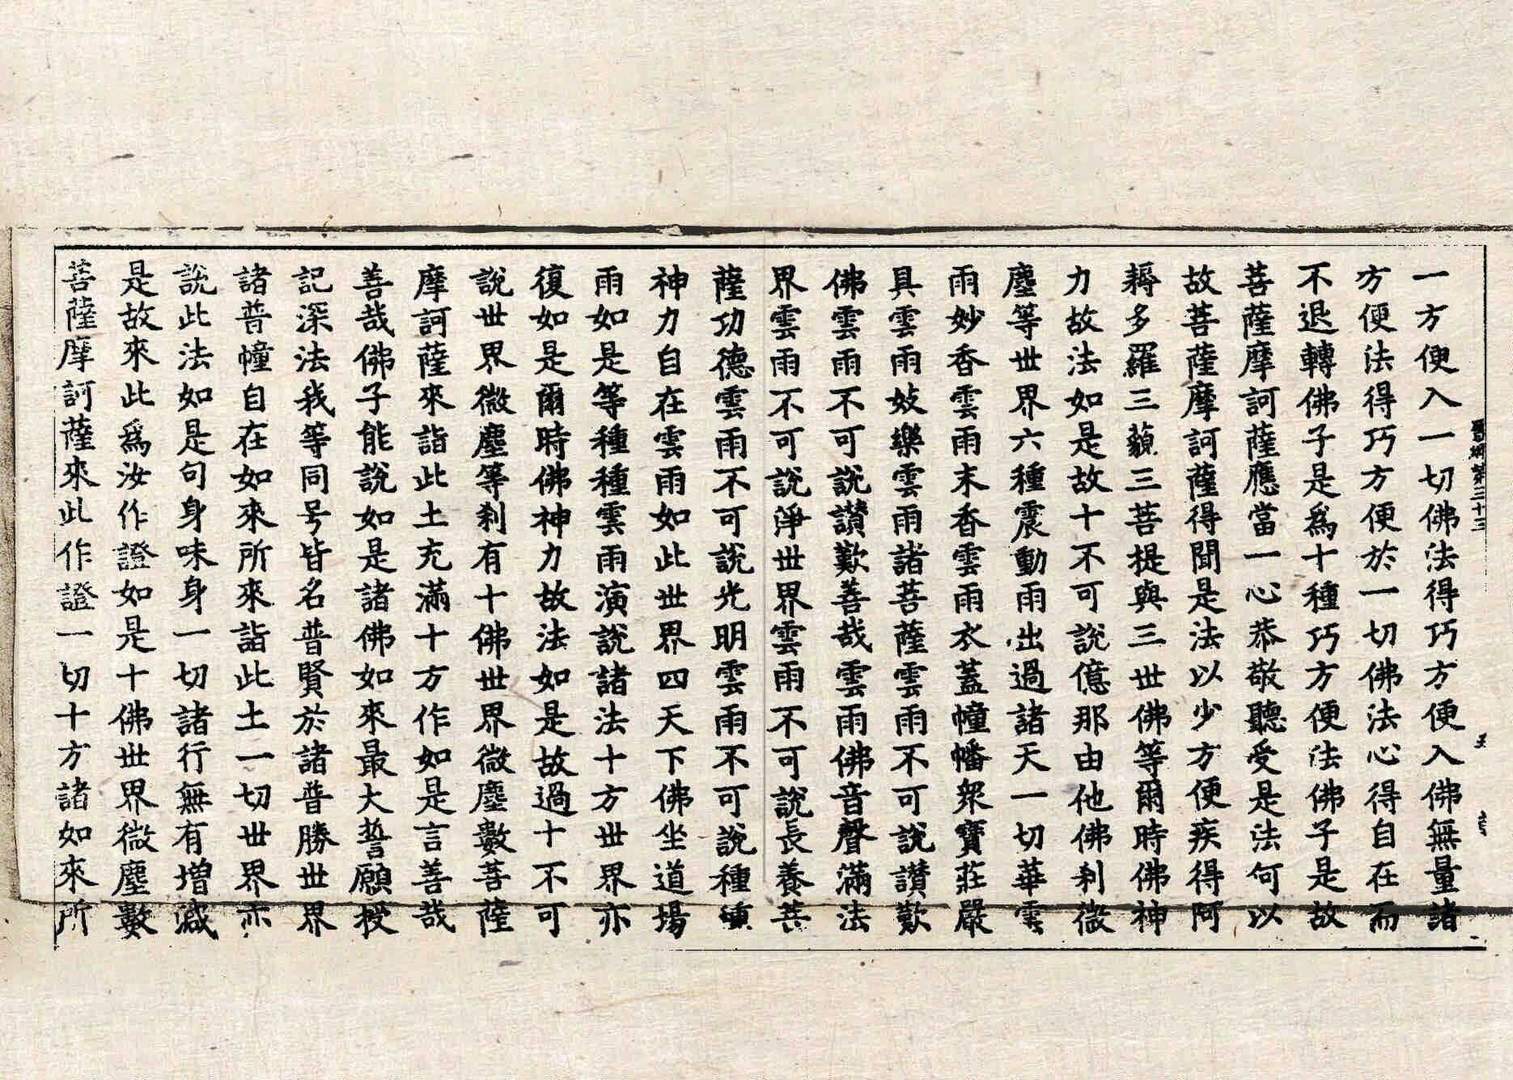 一方便入一切佛法得巧方便入佛無量諸
方便法得巧方便於一切佛法心得自在而
不退轉佛子是為十種巧方便法佛子是故
菩薩摩訶薩應當一心恭敬聽受是法何以
故菩薩摩訶薩得聞是法以少方便疾得阿
耨多羅三藐三菩提與三世佛等爾時佛神
力故法如是故十不可說億那由他佛剎微
塵等世界六種震動雨出過諸天一切華雲
雨妙香雲雨末香雲雨衣蓋幢幡眾寶莊嚴
具雲雨妓樂雲雨諸菩薩雲雨不可說讃歎
佛雲雨不可說讃歎善哉雲雨佛音聲滿法
界雲雨不可說淨世界雲雨不可說長養菩
薩功德雲雨不可說光明雲雨不可說種種
神力自在雲雨如此世界四天下佛坐道場
雨如是等種種雲雨演說諸法十方世界亦
復如是爾時佛神力故法如是故過十不可
說世界微塵等剎有十佛世界微塵數菩薩
摩訶薩來詣此土充滿十方作如是言善哉
善哉佛子能說如是諸佛如來最大誓願授
記深法我等同号皆名普賢於諸普勝世界
諸普幢自在如來所來詣此土一切世界亦
說此法如是句身味身一切諸行無有增減
是故來此為汝作證如是十佛世界微塵數
菩薩摩訶薩來此作證一切十方諸如來所